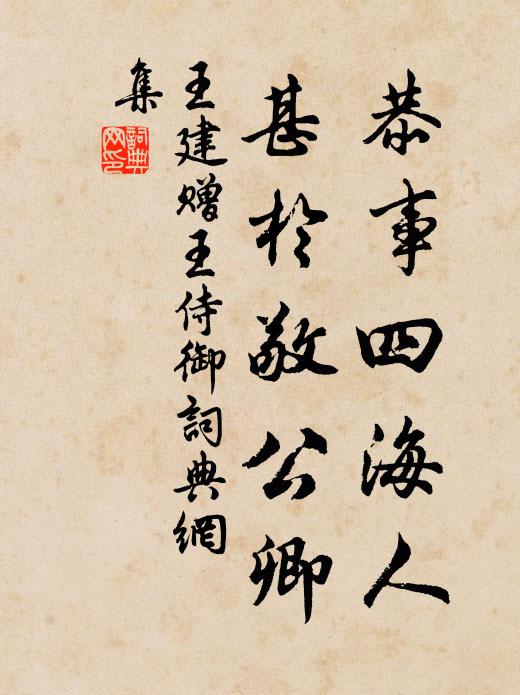 恭事四海人
甚於敬公卿
王建赠王侍御詞典網
集
詞典網印